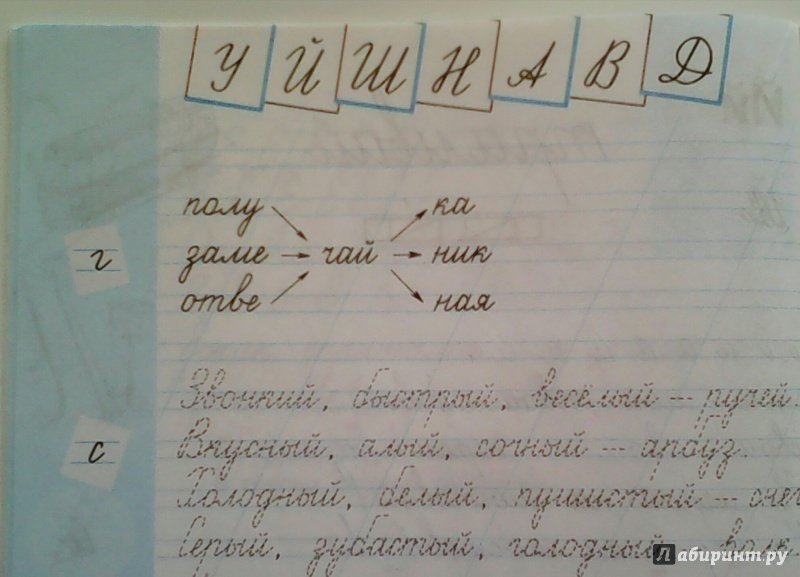 У Й Ш Н А В Д
полу ка
г заме → чай → ник
отве ная
Звонкий, быстрый, весёлый — ручей.
с Вкусный, алый, сочный — арбуз.
Холодный, белый, пушистый — снег
Серый, зубастый, голодный — волк.
Лабиринт.ру